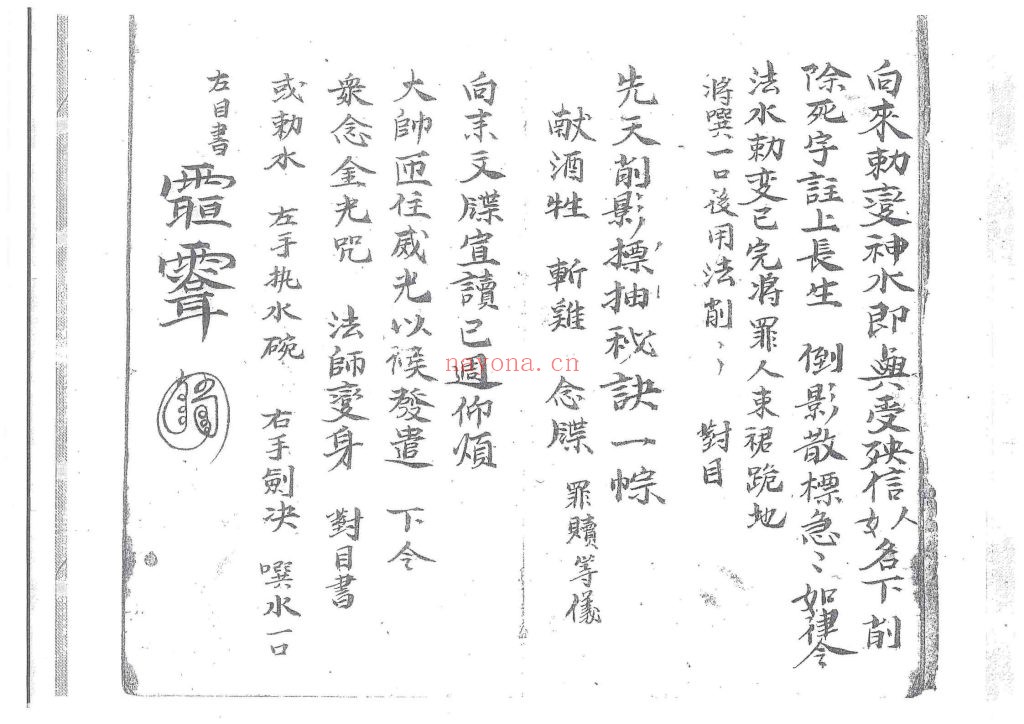 向來勅变神水即與受殃信人女名下削
除死字註上長生 倒影散標急〻如律令
法水勅变已完将罪人束裙跪地
将噀一口後用法削〻 對目
先天削影摽抽秘訣一宗
献酒牲 斬雞 念牒 罪贖等儀
向来文牒宣讀已週仰煩
大帥匝住威光以候發遣 下令
衆念金光咒 法師變身 對目書
或勅水 左手执水碗 右手劍决 噀水一口
左目書
nayona.cn